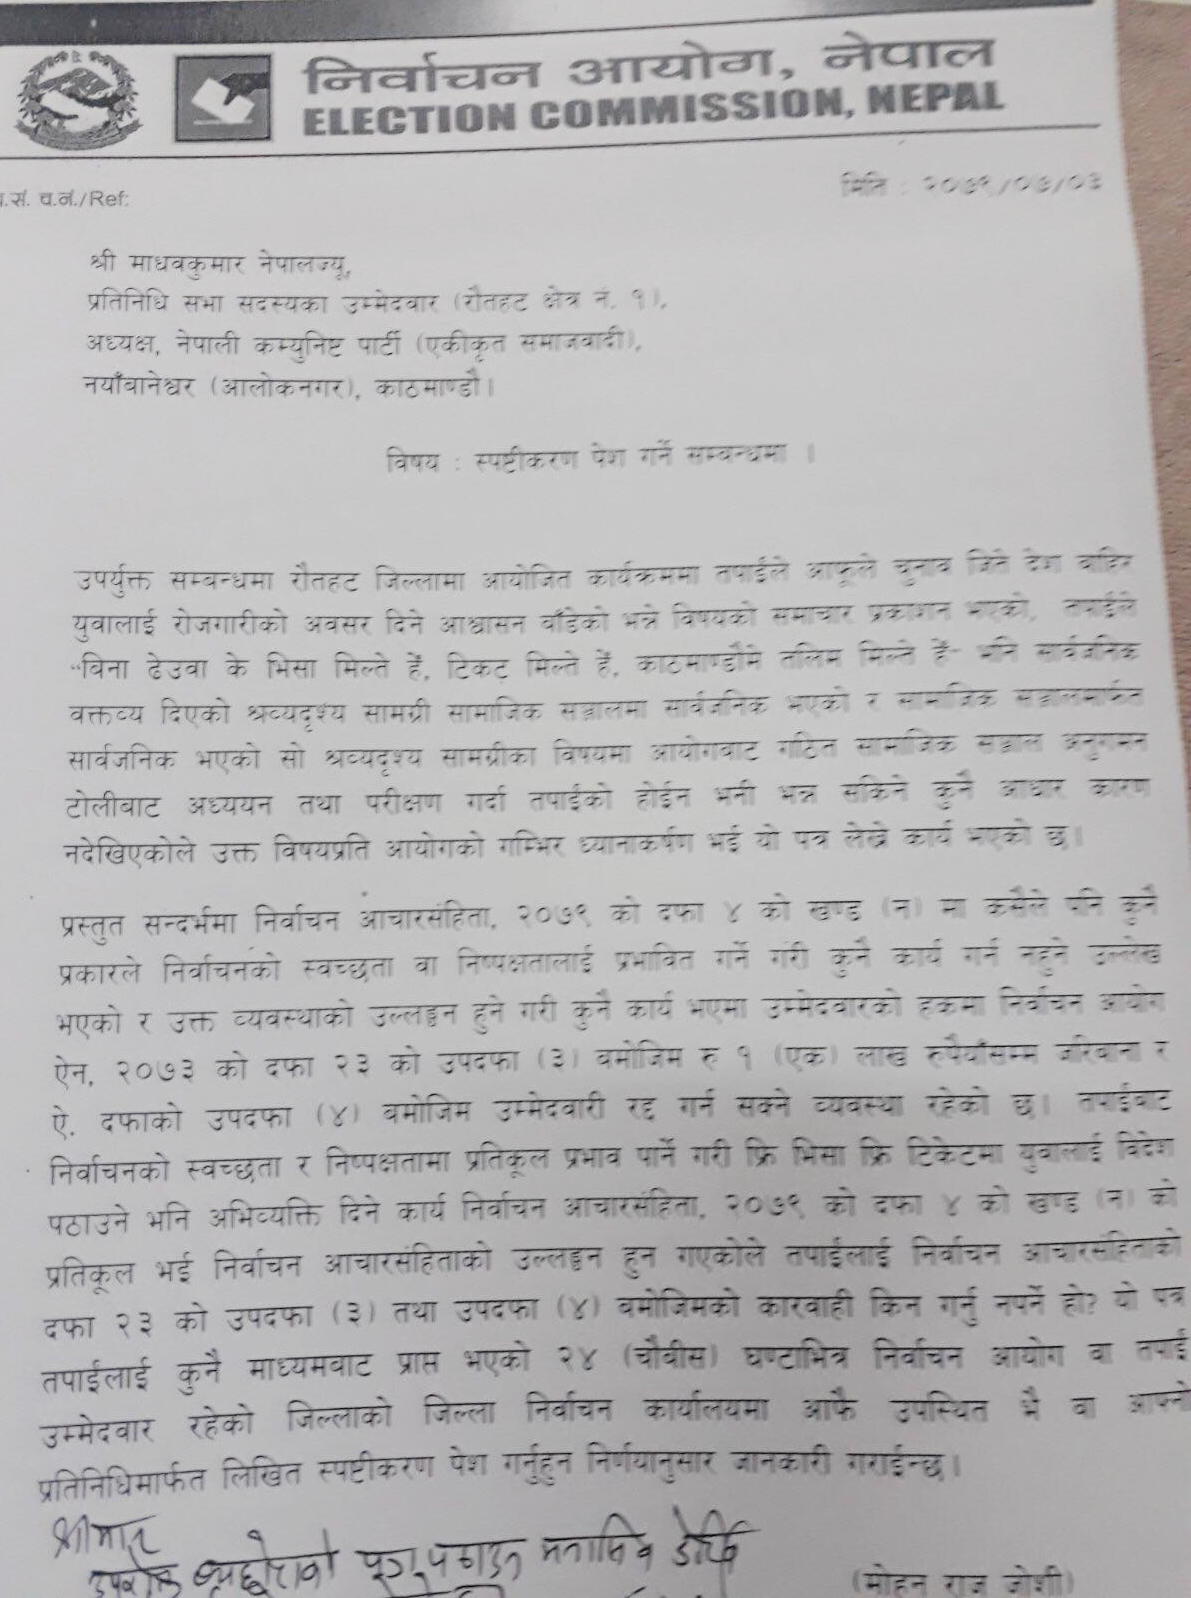 निर्वाचन आयोग, नेपाल
ELECTION COMMISSION, NEPAL
.सं. च.नं./Ref:
मिति : २०७९/०७/०३
श्री माधवकुमार नेपालज्यू,
प्रतिनिधि सभा सदस्यका उम्मेदवार (रौतहट क्षेत्र नं. १),
अध्यक्ष, नेपाली कम्युनिष्ट पार्टी (एकीकृत समाजवादी),
नयाँबानेश्वर (आलोकनगर), काठमाण्डौ।
विषय : स्पष्टीकरण पेश गर्ने सम्बन्धमा ।
उपर्युक्त सम्बन्धमा रौतहट जिल्लामा आयोजित कार्यक्रममा तपाईंले आफूले चुनाव जिते देश बाहिर
युवालाई रोजगारीको अवसर दिने आश्वासन बाँडेको भन्ने विषयको समाचार प्रकाशन भएको, तपाईंले
"बिना ढेउवा के भिसा मिल्ते हैं, टिकट मिल्ते हैं, काठमाण्डौमे तलिम मिल्ते हैं" भनि सार्वजनिक
वक्तव्य दिएको श्रव्यदृश्य सामग्री सामाजिक सञ्जालमा सार्वजनिक भएको र सामाजिक सञ्जालमार्फत
सार्वजनिक भएको सो श्रव्यदृश्य सामग्रीका विषयमा आयोगबाट गठित सामाजिक सञ्जाल अनुगमन
टोलीबाट अध्ययन तथा परीक्षण गर्दा तपाईंको होईन भनी भन्न सकिने कुनै आधार कारण
नदेखिएकोले उक्त विषयप्रति आयोगको गम्भिर ध्यानाकर्षण भई यो पत्र लेख्ने कार्य भएको छ।
प्रस्तुत सन्दर्भमा निर्वाचन आचारसंहिता, २०७९ को दफा ४ को खण्ड (न) मा कसैले पनि कुनै
प्रकारले निर्वाचनको स्वच्छता वा निष्पक्षतालाई प्रभावित गर्ने गरी कुनै कार्य गर्न नहुने उल्लेख
भएको र उक्त व्यवस्थाको उल्लङ्घन हुने गरी कुनै कार्य भएमा उम्मेदवारको हकमा निर्वाचन आयोग
ऐन, २०७३ को दफा २३ को उपदफा (३) बमोजिम रु १ (एक) लाख रुपैयाँसम्म जरिवाना र
ऐ. दफाको उपदफा (४) बमोजिम उम्मेदवारी रद्द गर्न सक्ने व्यवस्था रहेको छ। तपाईंबाट
निर्वाचनको स्वच्छता र निष्पक्षतामा प्रतिकूल प्रभाव पार्ने गरी फ्रि भिसा फ्रि टिकेटमा युवालाई विदेश
पठाउने भनि अभिव्यक्ति दिने कार्य निर्वाचन आचारसंहिता, २०७९ को दफा ४ को खण्ड (न) को
प्रतिकूल भई निर्वाचन आचारसंहिताको उल्लङ्घन हुन गएकोले तपाईंलाई निर्वाचन आचारसंहिताको
दफा २३ को उपदफा (३) तथा उपदफा (४) बमोजिमको कारवाही किन गर्नु नपर्ने हो? यो पत्र
तपाईंलाई कुनै माध्यमबाट प्राप्त भएको २४ (चौबीस) घण्टाभित्र निर्वाचन आयोग वा तपाईं
उम्मेदवार रहेको जिल्लाको जिल्ला निर्वाचन कार्यालयमा आफै उपस्थित भै वा आफ्नो
प्रतिनिधिमार्फत लिखित स्पष्टीकरण पेश गर्नुहुन निर्णयानुसार जानकारी गराईन्छ।
श्रीमान
उपरोक्त
(मोहन राज जोशी)